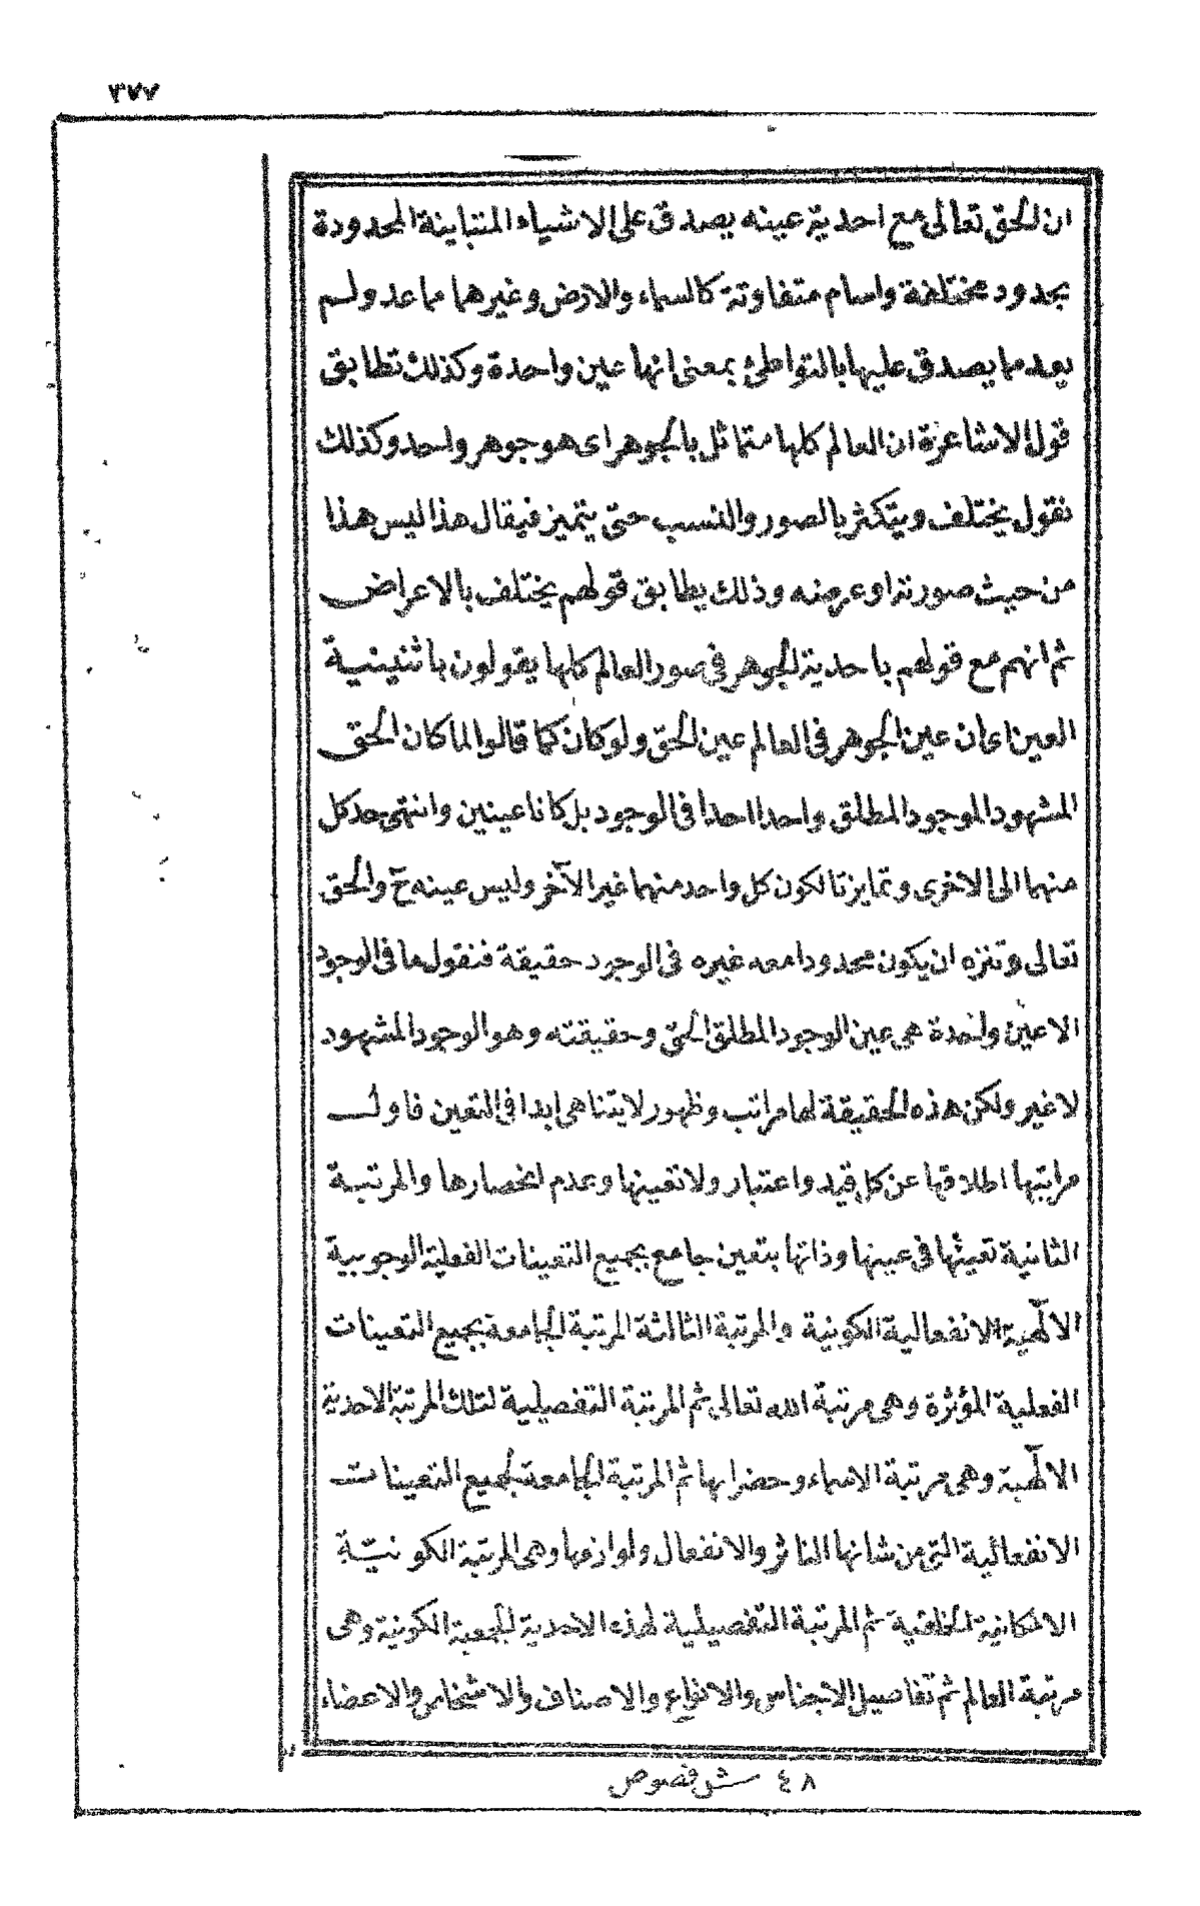 ٣٧٧
ان الحق تعالى مع احدية عينه يصدق على الاشياء المتباينة المحدودة
بحدود مختلفة واسام متفاوتة كالسماء والارض وغيرهما مما عد ولم
يعد مما يصدق عليها بالتواطئ بمعنى انها عين واحدة وكذلك تطابق
قول الاشاعرة ان العالم كلها متماثل بالجوهر اى هو جوهر واحد وكذلك
نقول يختلف ويتكثر بالصور والنسب حتى يتميز فيقال هذا ليس هذا
من حيث صورته او عرضه وذلك يطابق قولهم يختلف بالاعراض
ثم انهم مع قولهم باحدية الجوهر فى صور العالم كلها يقولون باثنينية
العين اى ان عين الجوهر فى العالم عين الحق ولو كان كما قالوا لما كان الحق
المشهود الموجود المطلق واحدا احدا فى الوجود بل كانا عينين وانتهى حد كل
منهما الى الاخرى وتمايزتا لكون كل واحد منهما غير الآخر وليس عينه ح والحق
تعالى وتنزه ان يكون محدودا معه غيره فى الوجود حقيقة فنقول ما فى الوجود
الا عين واحدة هى عين الوجود المطلق الحق وحقيقته وهو الوجود المشهود
لا غير ولكن هذه الحقيقة لها مراتب وظهور لا يتناهى ابدا فى التعين فاول
مراتبها اطلاقها عن كل قيد واعتبار ولا تعينها وعدم انحصارها والمرتبة
الثانية تعينها فى عينها وذاتها بتعين جامع بجميع التعينات الفعلية الوجوبية
الالهية الانفعالية الكونية والمرتبة الثالثة المرتبة الجامعة بجميع التعينات
الفعلية المؤثرة وهى مرتبة الله تعالى ثم المرتبة التفصيلية لتلك المرتبة الاحدية
الالهية وهى مرتبة الاسماء وحضراتها ثم المرتبة الجامعة لجميع التعينات
الانفعالية التى من شانها التاثر والانفعال ولوازمها وهى المرتبة الكونية
الامكانية الخلقية ثم المرتبة التفصيلية لهذه الاحدية الجمعية الكونية وهى
مرتبة العالم ثم تفاصيل الاجناس والانواع والاصناف والاشخاص والاعضاء
٤٨ ش فصوص